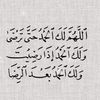 اللَّهُمَّ لَكَ الْحَمْدُ حَتَّى تَرْضَى
وَلَكَ الْحَمْدُ إِذَا رَضِيتَ
وَلَكَ الْحَمْدُ بَعْدَ الرِّضَا